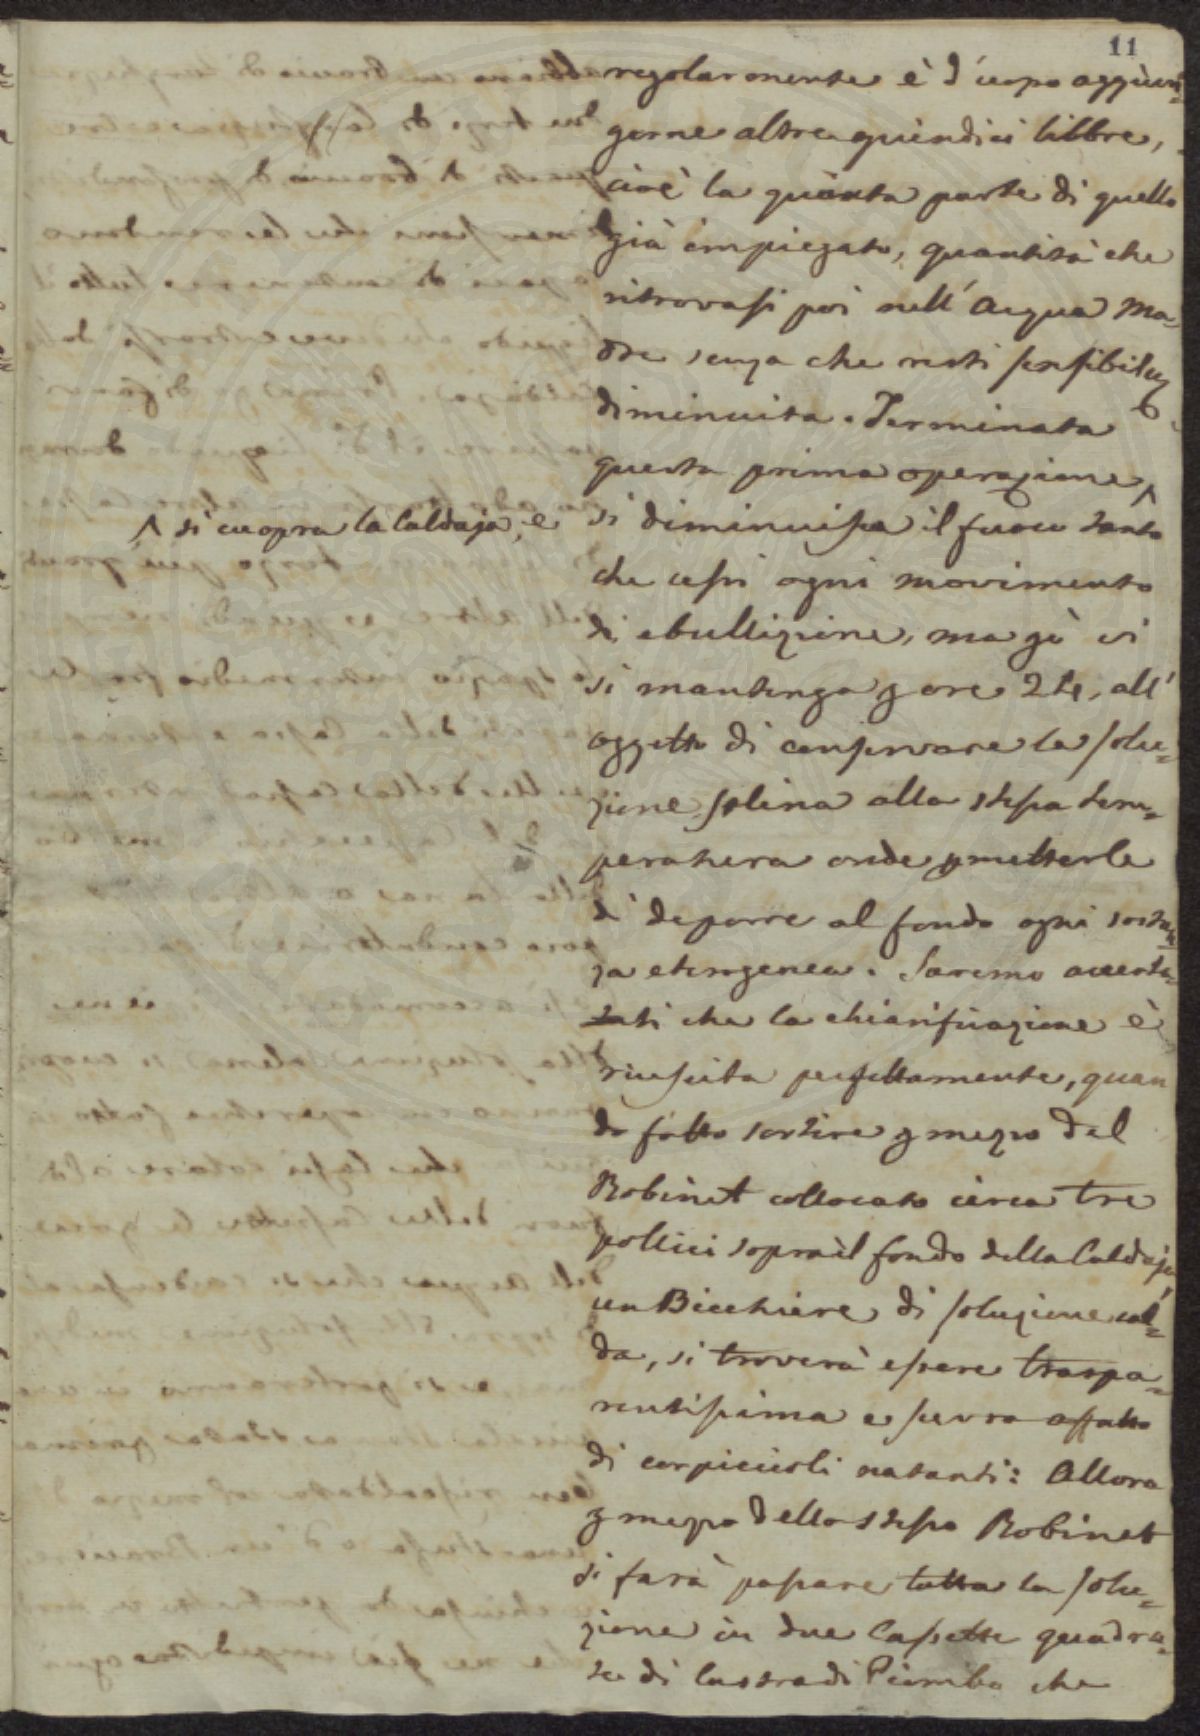 11
regolarmente è d'uopo aggiun-
gerne altre quindici libbre,
cioè la quinta parte di quello
già impiegato, quantità che
ritrovasi poi nell'Acqua Ma-
dre senza che resti sensibilm
diminuita. Terminata
questa prima operazione ^
^ si cuopra la Caldaja, e
si diminuisca il fuoco tanto
che cessi ogni movimento
di ebullizione, ma già vi
si mantenga p ore 24, all'
oggetto di conservare la solu-
zione salina alla stessa tem-
peratura onde pmetterle
di deporre al fondo ogni sostan
za eterogenea. Saremo accerta-
ti che la chiarificazione è
riuscita perfettamente, quan
do fatto sortire p mezzo del
Robinet collocato circa tre
pollici sopra il fondo della Caldaja
un Bicchiere di soluzione cal-
da, si troverà essere traspa-
rentissima e scevra affatto
di corpiccioli natanti: Allora
p mezzo dello stesso Robinet
si farà passare tutta la solu-
zione in due Cassette quadra-
te di lastra di Piombo che